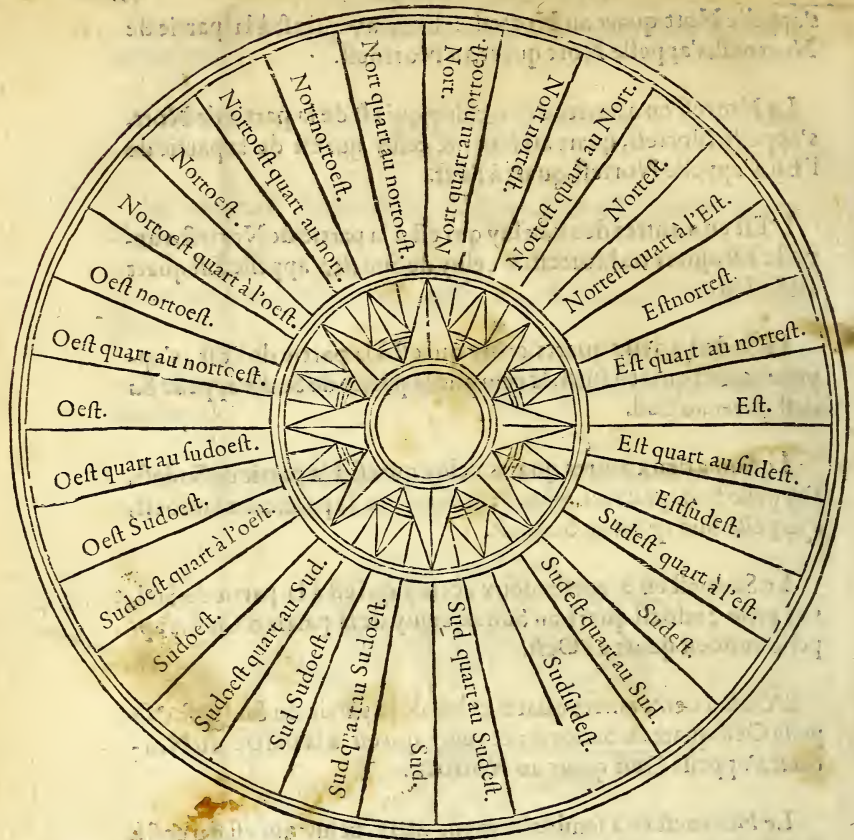 Nort.
Nort quart au nortoeſt.
Nort norteſt.
Norteſt quart au Nort.
Norteſt.
Norteſt quart à l'Eſt.
Eſtnorteſt.
Eſt quart au norteſt.
Eſt.
Eſt quart au ſudeſt.
Eſtſudeſt.
Sudeſt quart à l'eſt.
Sudeſt.
Sudeſt quart au Sud.
Sudſudeſt.
Sud quart au Sudeſt.
Sud.
Sud quart au Sudoeſt.
Sud Sudoeſt.
Sudoeſt quart au Sud.
Sudoeſt.
Sudoeſt quart à l'oeſt.
Oeſt Sudoeſt.
Oeſt quart au ſudoeſt.
Oeſt.
Oeſt quart au nortoeſt.
Oeſt nortoeſt.
Nortoeſt quart à l'oeſt.
Nortoeſt.
Nortoeſt quart au nort.
Nortnortoeſt.
Nort quart au nortoeſt.